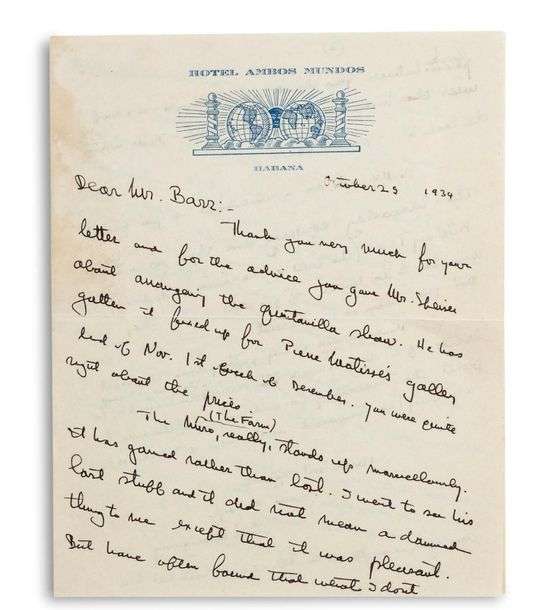 HOTEL AMBOS MUNDOS
HABANA
October 23 1934
Dear Mr. Barr:-
Thank you very much for your
letter and for the advice you gave Mr. Sheiner
about arranging the Quintanilla show. He has
gotten it fixed up for Pierre Matisse's gallery
end of Nov. 1st week of December. You were quite
right about the prices
(The Farm)
The Miro, really, stands up marvellously.
It has gained rather than lost. I went to see his
last stuff and it did not mean a damned
thing to me except that it was pleasant.
But have often found that what I dont